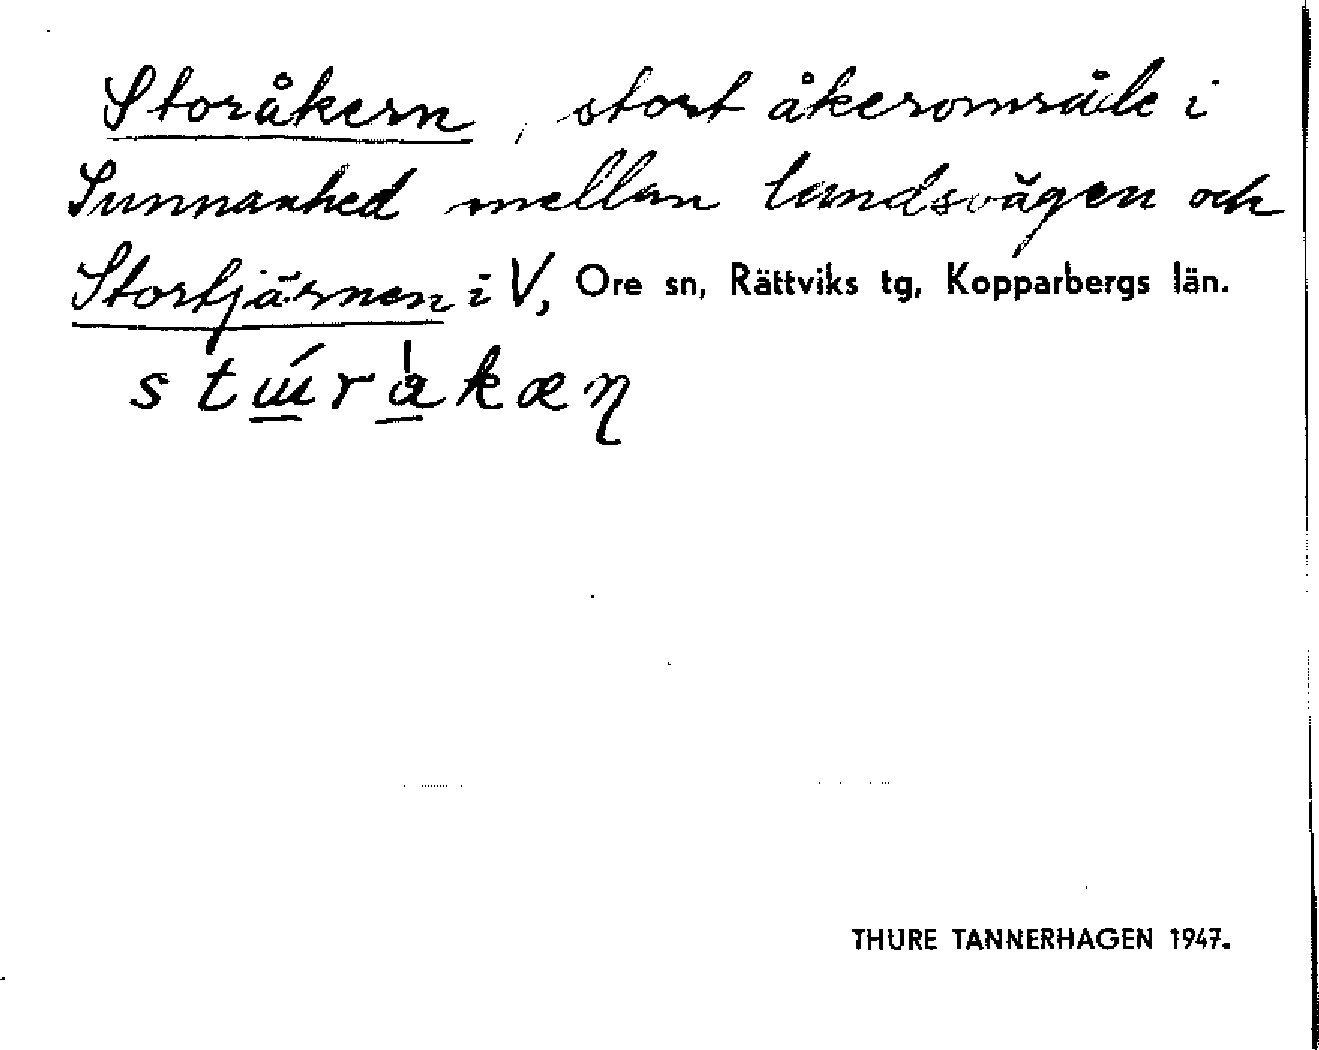 Storåkern, stort åkerområde i
Sunnanhed mellan landsvägen och
Stortjärnen i V, Ore sn, Rättviks tg, Kopparbergs län.
THURE TANNERHAGEN 1947.